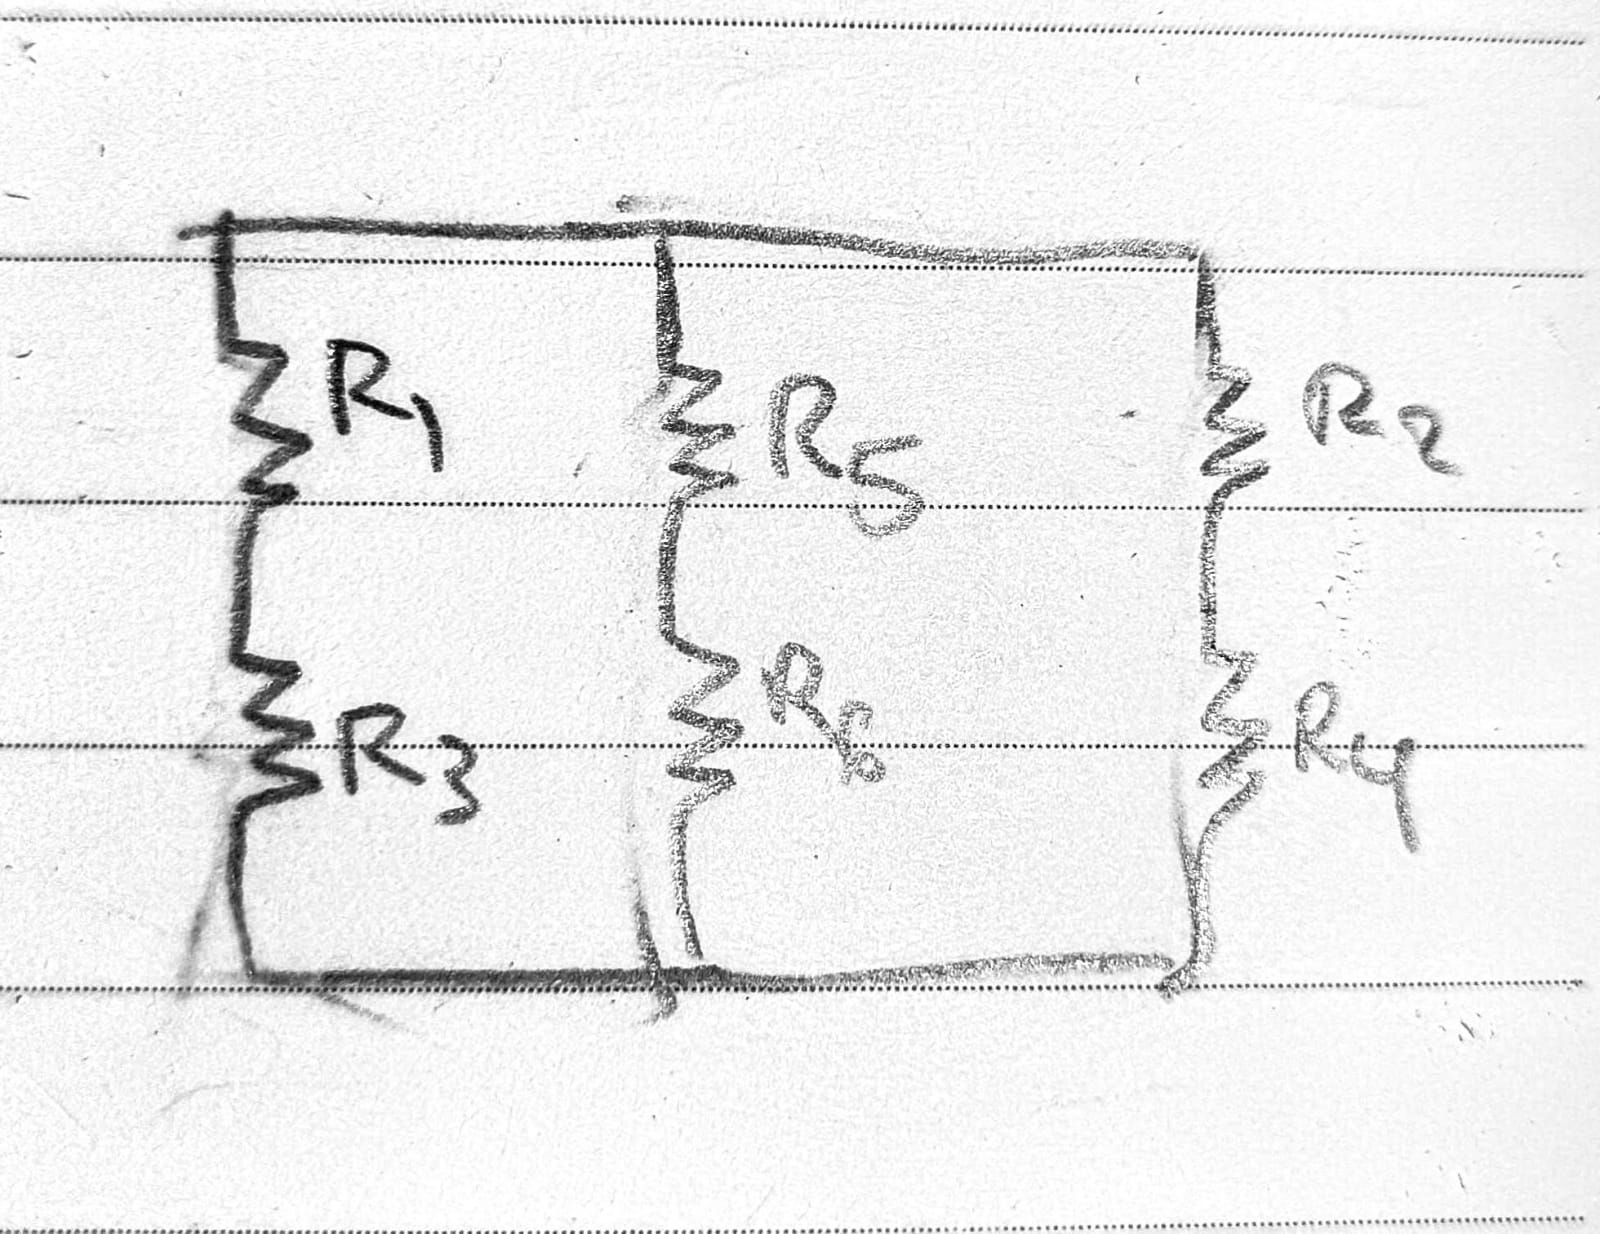 R1 R5 R2
R3 R6 R4